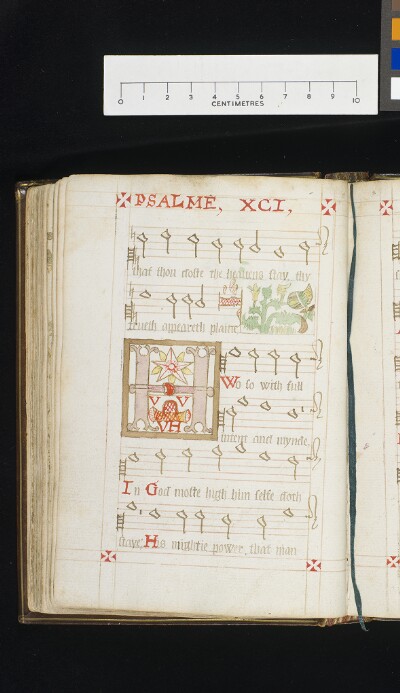 0 1 2 3 4 5 6 7 8 9 10
CENTIMETRES
PSALME, XCI,
that thou doste the heavens stay, thy
trueth appeareth plaine,
Who so with full
intent and mynde,
In God moste high him selfe doth
staye, His mightie power, that man